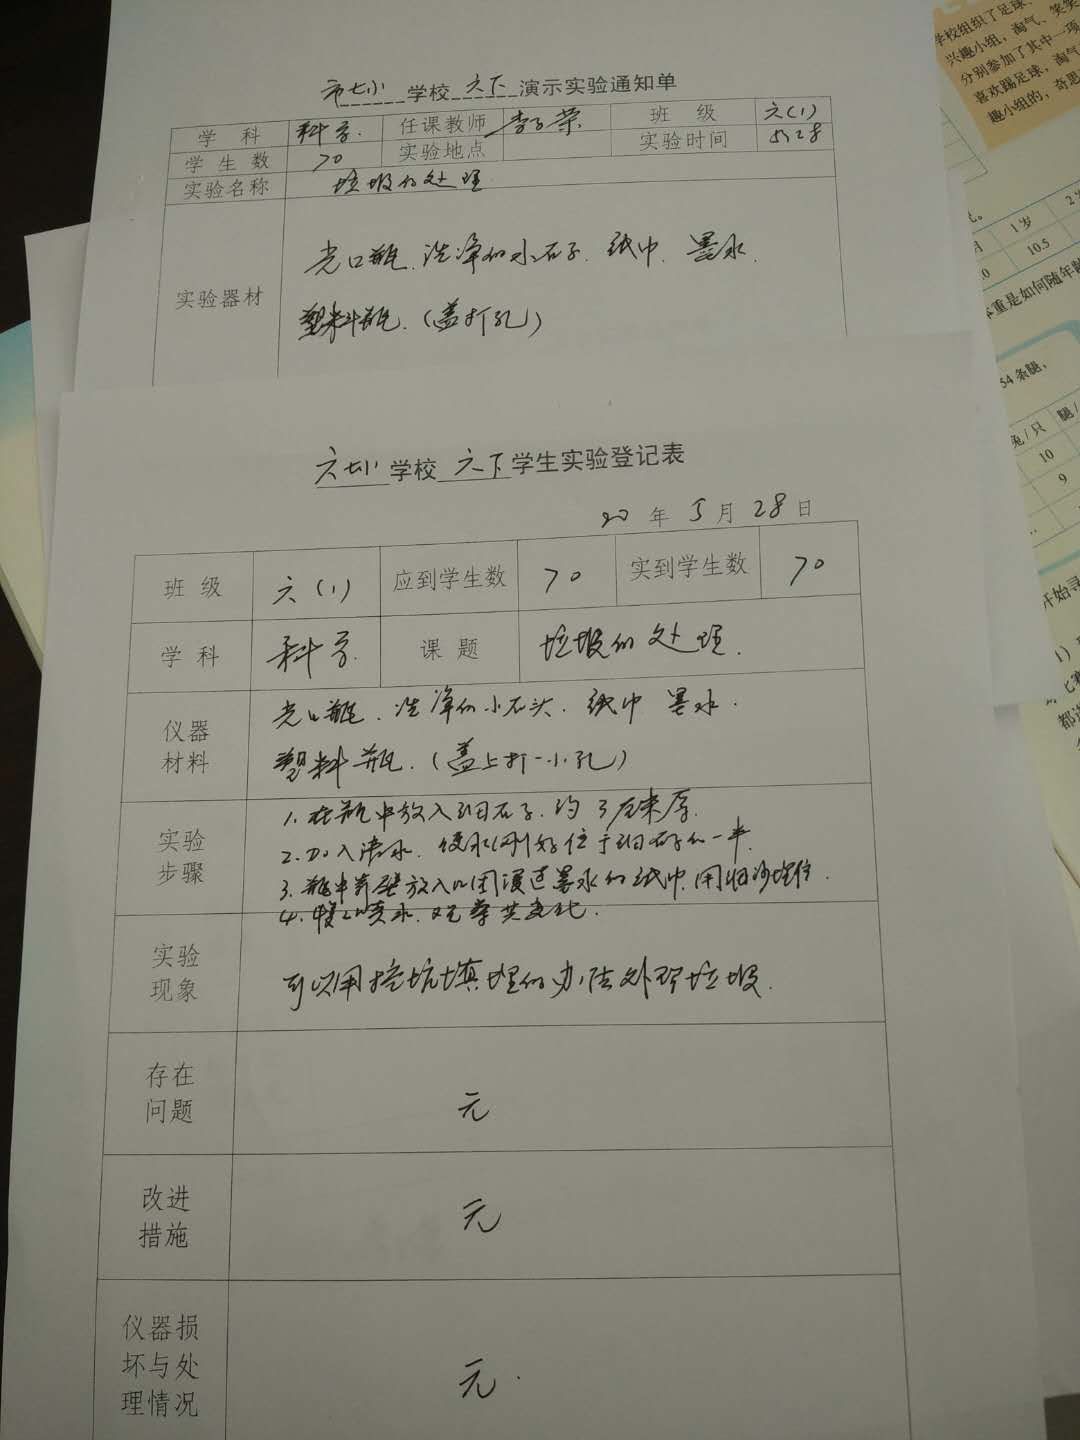 市七小学校六下演示实验通知单
学科 科学 任课教师 李子荣 班级 六(1)
学生数 70 实验地点 实验时间 5.28
实验名称 垃圾的处理
实验器材
光口瓶、洗净的小石子、纸巾、墨水、
塑料瓶、(盖打孔)
六七小学校六下学生实验登记表
20年5月28日
班级 六(1) 应到学生数 70 实到学生数 70
学科 科学 课题 垃圾的处理.
仪器材料
广口瓶、洗净的小石头、纸巾 墨水.
塑料瓶、(盖上打一小孔)
实验步骤
1、在瓶中放入细石子.约3厘米厚.
2、加入清水、使水刚好位于细石子的一半.
3、瓶中靠壁放入一团浸过墨水的纸巾,用细沙埋住.
4、慢慢喷水.观察其变化.
实验现象
可以用挖坑填埋的办法处理垃圾.
存在问题
元
改进措施
元
仪器损坏与处理情况
元.
学校组织了足球、
兴趣小组,淘气、笑笑
分别参加了其中一项
喜欢踢足球,淘气
趣小组的,奇思
1岁
2
10.5
体重是如何随年龄
54条腿,
兔/只
腿/
10
9
开始寻